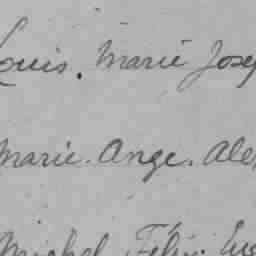 Louis. Marie Jose
Marie. Ange. Ale
Michel Félix. Eug